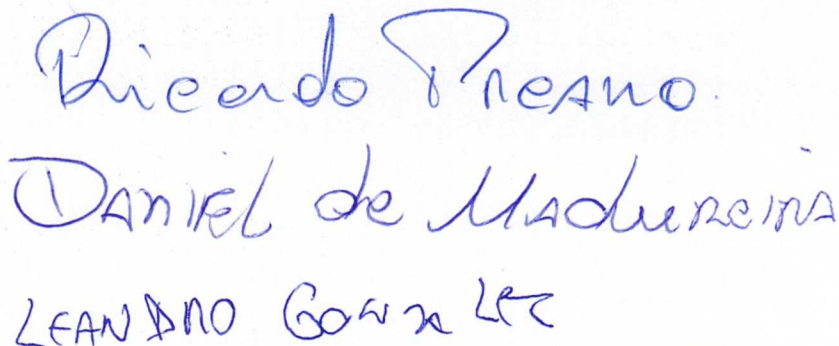 Ricardo Preano.
Daniel de Madureira
LEANDRO Gonzalez